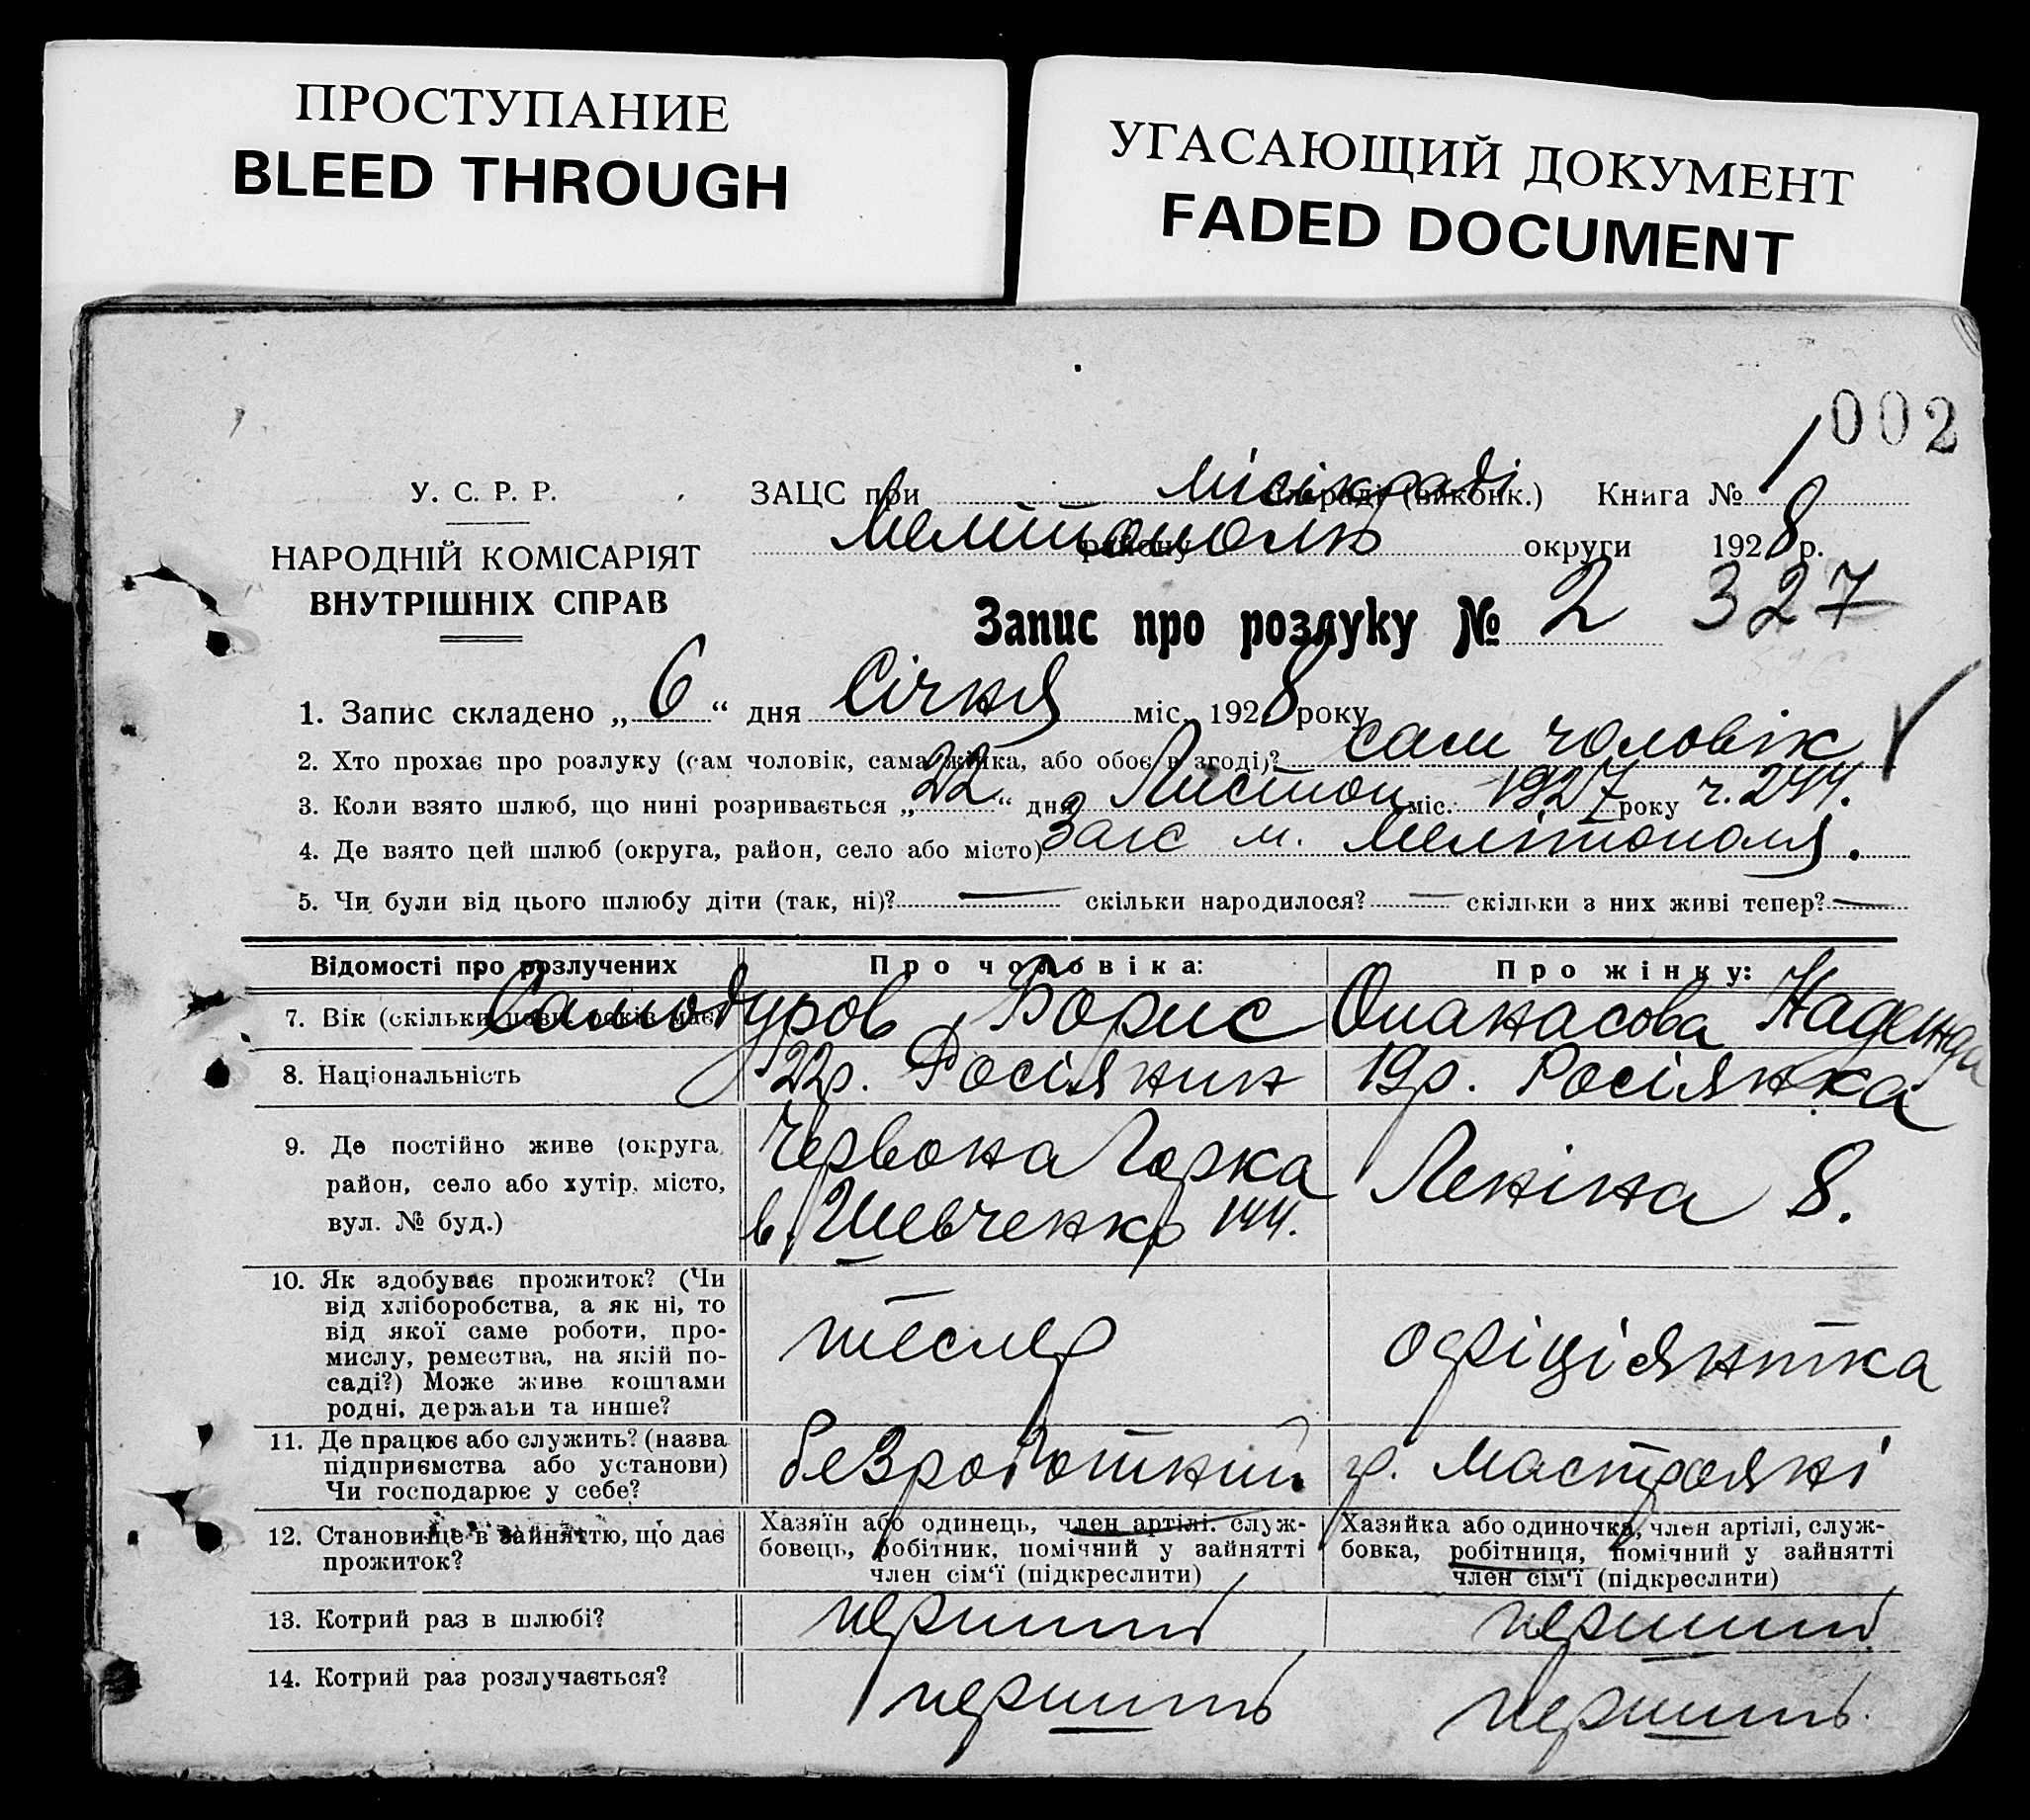 ПРОСТУПАНИЕ
BLEED THROUGH
УГАСАЮЩИЙ ДОКУМЕНТ
FADED DOCUMENT
002
У. С. Р. Р.
НАРОДНІЙ КОМІСАРІЯТ
ВНУТРІШНІХ СПРАВ
ЗАЦС при Міськраді (виконк.) Книга № 1
Мелітополь району округи 1928 р.
Запис про розлуку № 2 327
1. Запис складено „6“ дня Січня міс. 1928 року
2. Хто прохає про розлуку (сам чоловік, сама жінка, або обоє в згоді)? сам чоловік
3. Коли взято шлюб, що нині розривається „22“ дня Листоп міс. 1927 року ч. 244.
4. Де взято цей шлюб (округа, район, село або місто) Загс м. Мелітополя.
5. Чи були від цього шлюбу діти (так, ні)? — скільки народилося? — скільки з них живі тепер? —
Відомості про розлучених Про чоловіка: Про жінку:
Самодуров Борис Опанасова Надежда
7. Вік (скільки повн. років має)
8. Національність 22р. Росіянин 19р. Росіянка
9. Де постійно живе (округа, Червона Горка Леніна 8.
район, село або хутір, місто, в. Шевченко 144.
вул. № буд.)
10. Як здобуває прожиток? (Чи
від хліборобства, а як ні, то
від якої саме роботи, про-
мислу, ремества, на якій по-
саді?) Може живе коштами
родні, держави та инше?
тесляр офіціянтка
11. Де працює або служить? (назва
підприємства або установи)
Чи господарює у себе?
безроботний
12. Становище в зайняттю, що дає
прожиток?
Хазяїн або одинець, член артілі, служ-
бовець, робітник, помічний у зайнятті
член сім‘ї (підкреслити)
Хазяйка або одиночка, член артілі, служ-
бовка, робітниця, помічний у зайнятті
член сім‘ї (підкреслити)
13. Котрий раз в шлюбі? перший перший
14. Котрий раз розлучається? перший перший